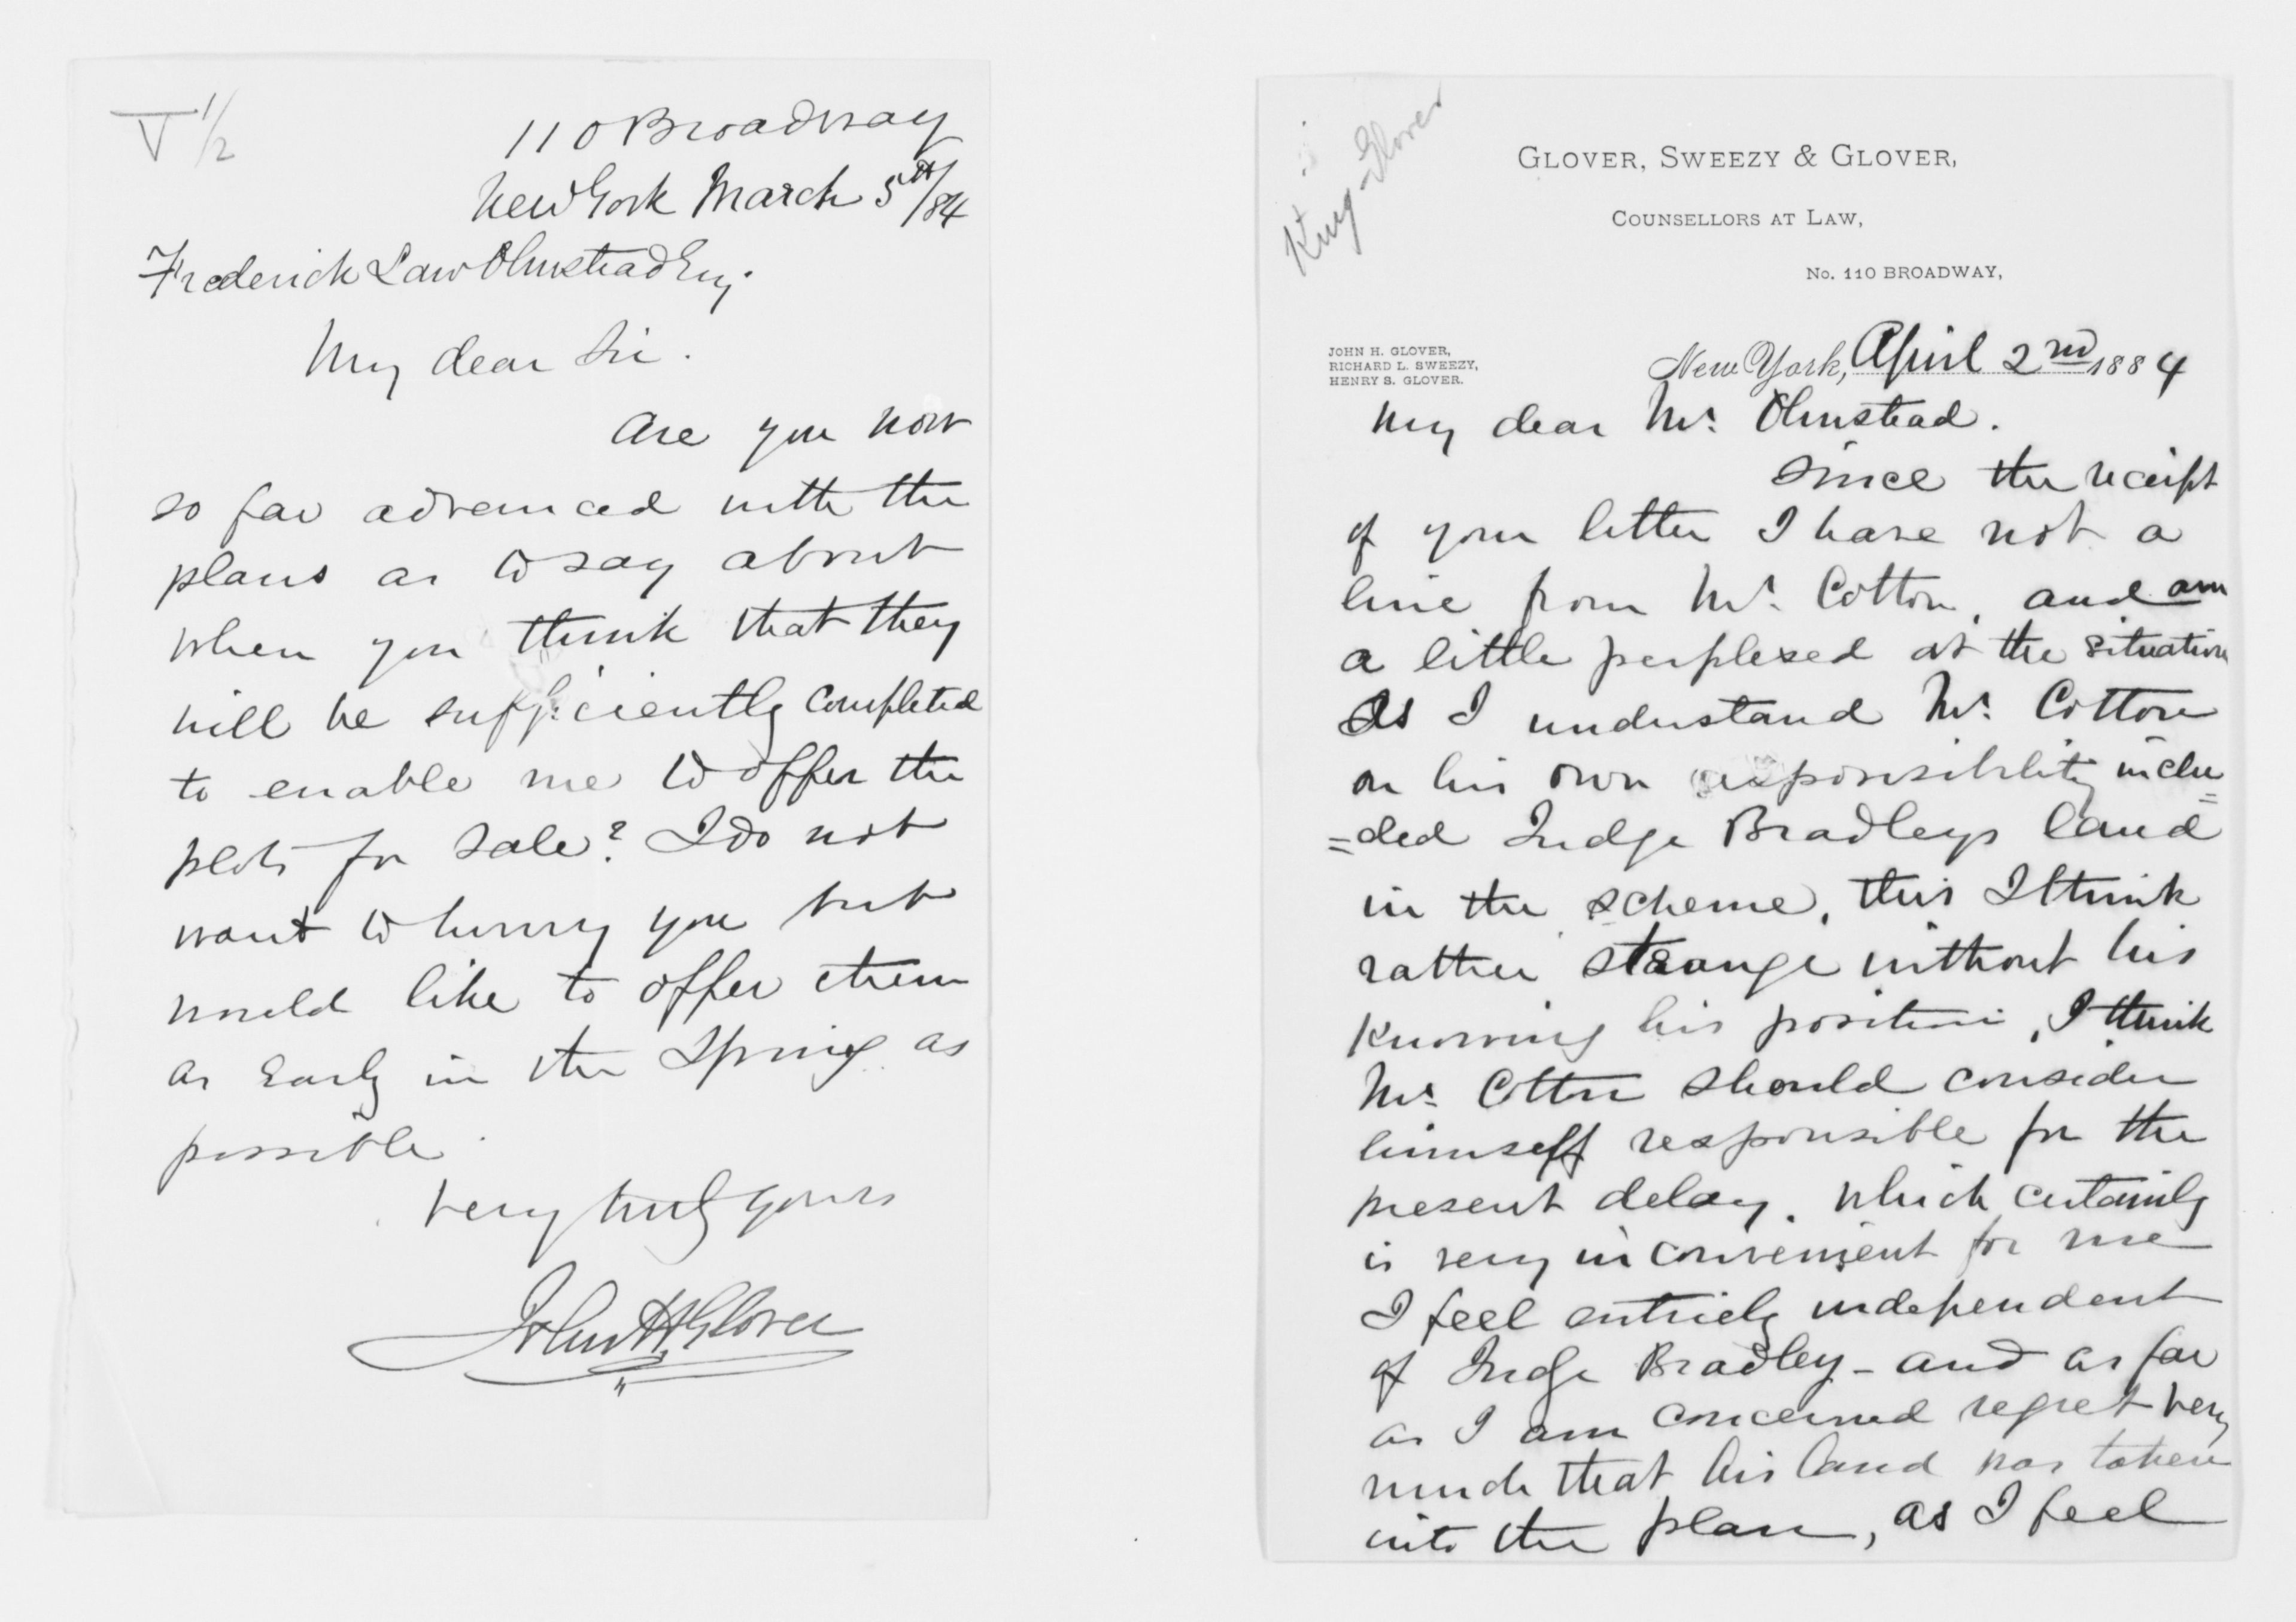 V 1/2
110 Broadway
New York March 5th/84
Frederick Law Olmstead Esq.
My dear Sir.
Are you now
so far advanced with the
plans as to say about
when you think that they
will be sufficiently completed
to enable me to offer the
plots for sale? I do not
want to hurry you but
would like to offer them
as early in the Spring as
possible.
Very truly yours
John H. Glover
King-Glover
GLOVER, SWEEZY & GLOVER,
COUNSELLORS AT LAW,
No. 110 BROADWAY,
JOHN H. GLOVER,
RICHARD L. SWEEZY,
HENRY S. GLOVER.
New York, April 2nd 1884
My dear Mr. Olmstead.
Since the receipt
of your letter I have not a
line from Mr. Cotton, and am
a little perplexed at the situation
As I understand Mr. Cotton
on his own responsibility inclu=
=ded Judge Bradleys land
in the scheme, this I think
rather strange without his
knowing his position, I think
Mr. Cotton should consider
himself responsible for the
present delay. which certainly
is very inconvenient for me
I feel entirely independent
of Judge Bradley - and as far
as I am concerned regret very
much that his land was taken
into the plan, as I feel